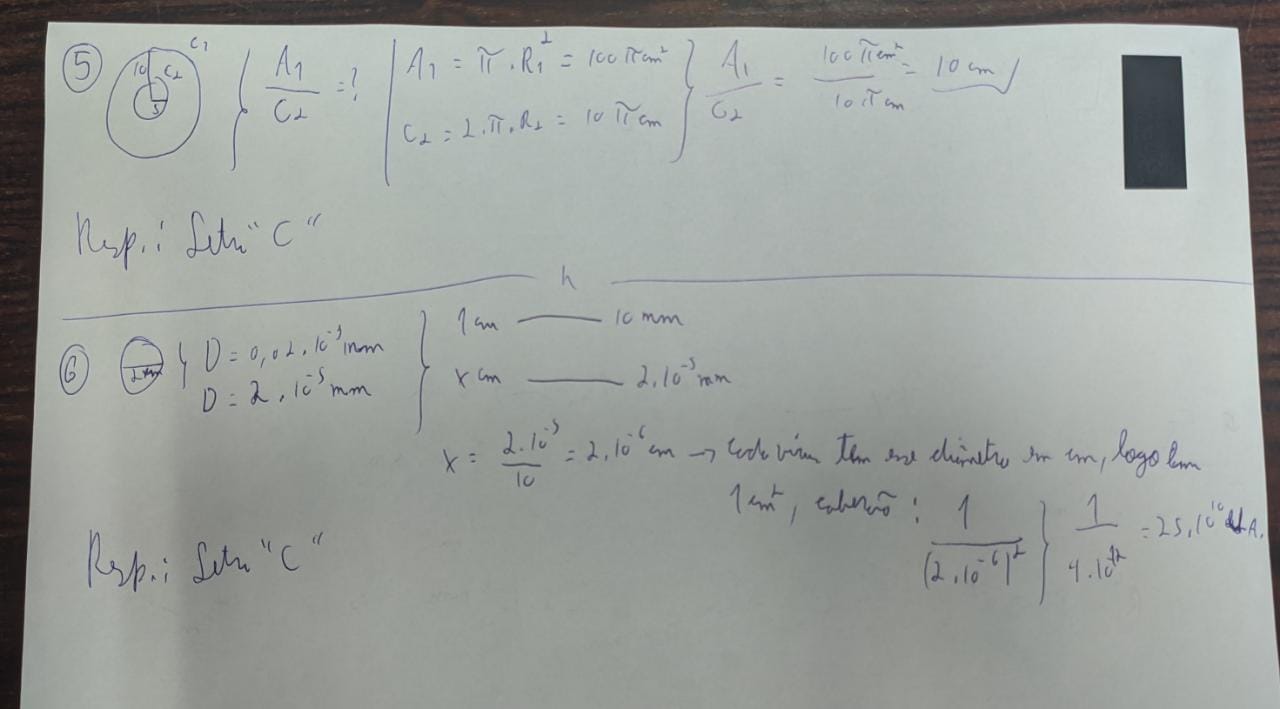 5 C1 10 C2 5 { A1/C2 = ? | A1 = π . R1² = 100 π cm² } A1/C2 = 100 π cm²/10 π cm = 10 cm
C2 = 2 . π . R2 = 10 π cm
Resp.: Letra "C"
6 { D = 0,02 . 10⁻³ mm } 1 cm —— 10 mm
D = 2 . 10⁻⁵ mm x cm —— 2 . 10⁻⁵ mm
x = 2 . 10⁻⁵/10 = 2 . 10⁻⁶ cm → cada vírus tem esse diâmetro em cm, logo em
1 cm², caberão : 1/(2 . 10⁻⁶)² } 1/4 . 10⁻¹² = 25 . 10¹⁰
Resp.: Letra "C"